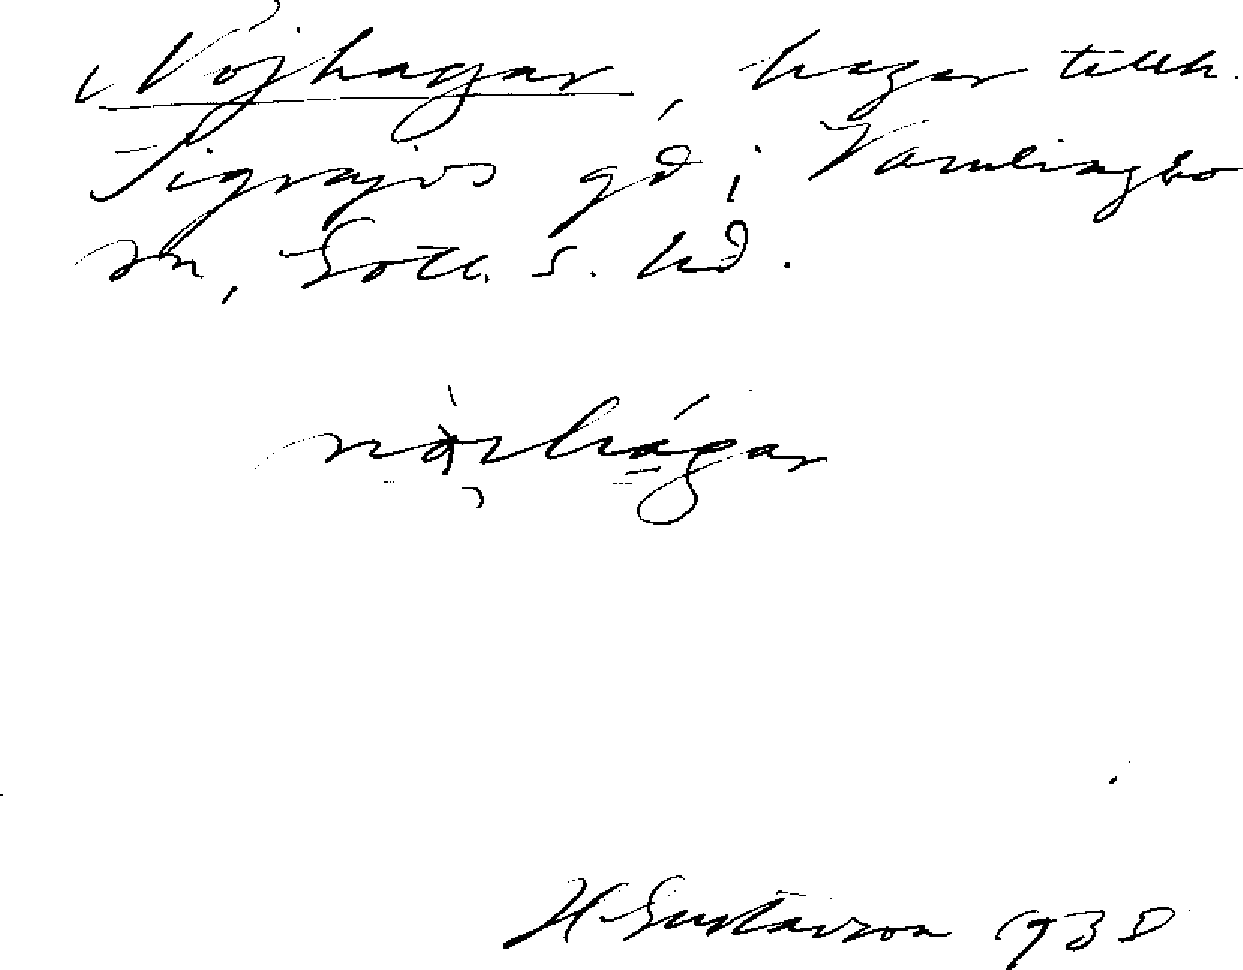 Nojhagar, hagar tillh.
Sigrajvs gd i Vamlingbo
sn, Gotl. s. hd.
H. Gustavson 1938